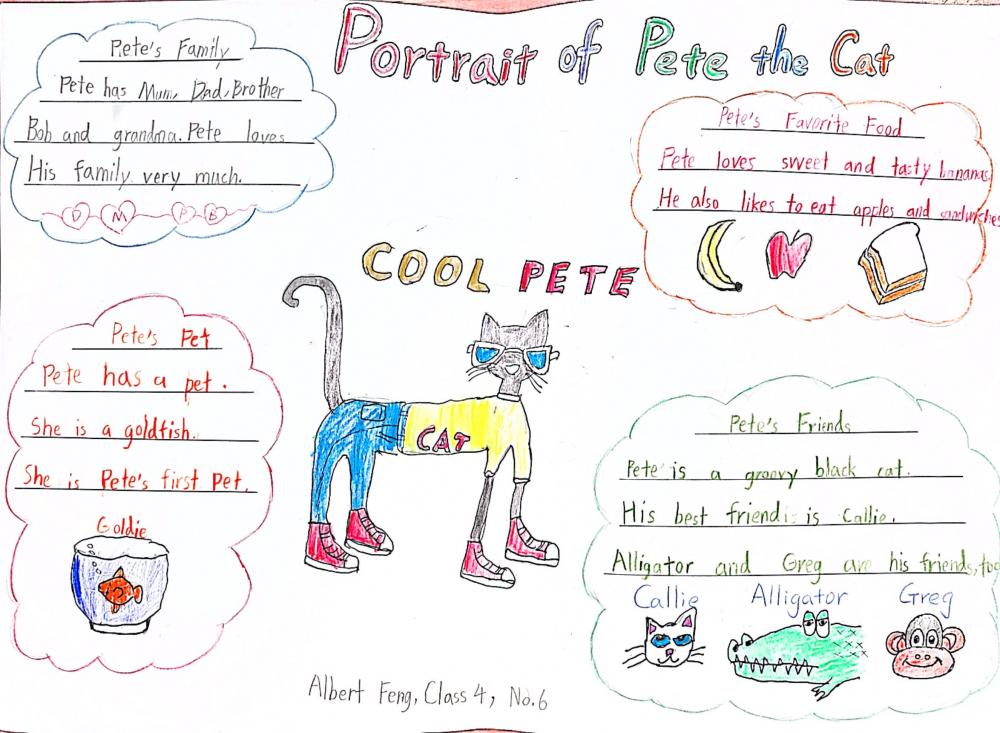 Portrait of Pete the Cat
Pete's Family
Pete has Mum, Dad, Brother
Bob and grandma. Pete loves
His family very much.
D M P B
Pete's Favorite Food
Pete loves sweet and tasty bananas.
He also likes to eat apples and sandwiches
COOL PETE
CAT
Pete's Pet
Pete has a pet.
She is a goldfish.
She is Pete's first Pet.
Goldie
Pete's Friends
Pete is a groovy black cat.
His best friend is Callie.
Alligator and Greg are his friends, too
Callie Alligator Greg
Albert Feng, Class 4, No.6